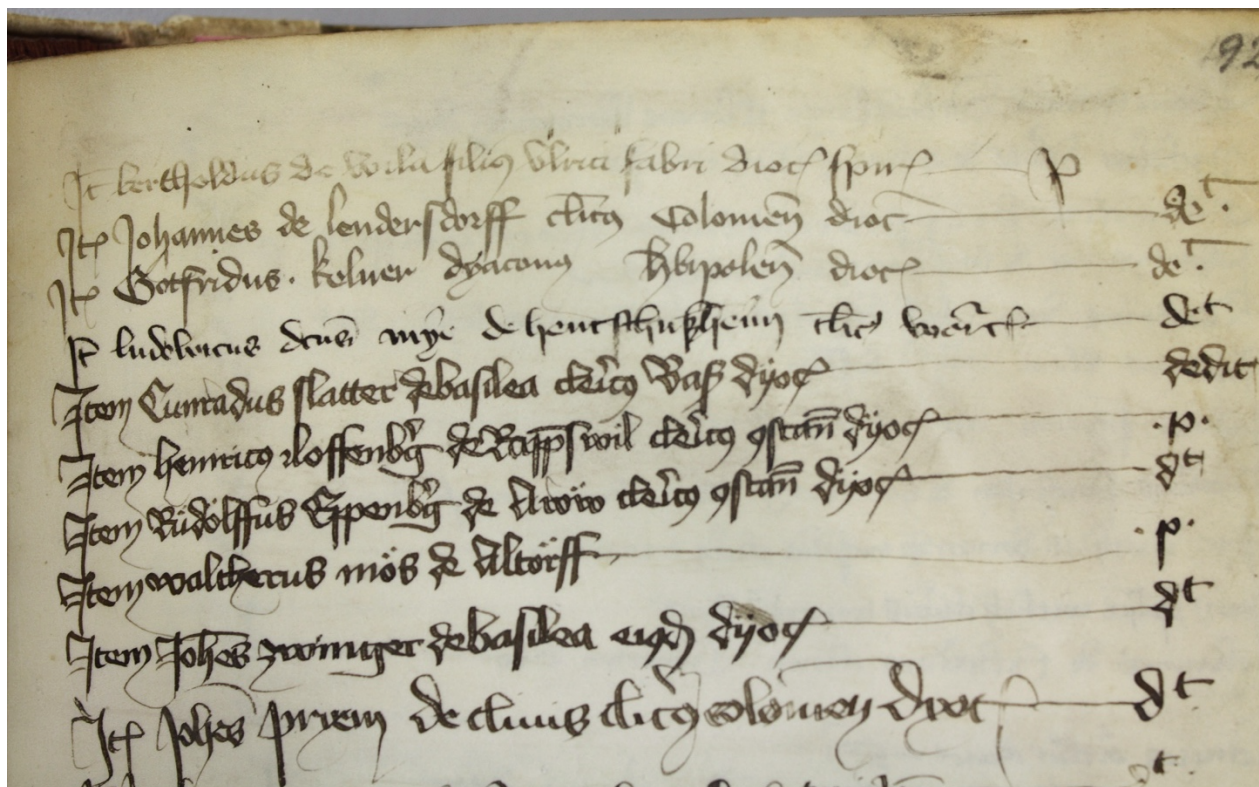 92
It bertholdus de wila filius Ulrici fabri dioc spir p
Itē Johannes de lendersdorff clīcus Colonieñ dioc det
Itē Gotfridus · kelner dyaconus hbipoleñ dioc det
It ludowicus dcūs de clic det
Item Cunradus slatter de basilea clericus Basł dyoc dedit
Item henricus loffenbg de Rapperswil clericus 9stañ dyoc · p ·
Item Růdolffus Eppenbg de clericus 9stañ dyoc dt
Item waltherus mös de Altorff · p ·
Item Johēs zwinger de basilea eiusd dyoc dt
Itē Johēs pryem de cliuis clicus colonień dyoc dt